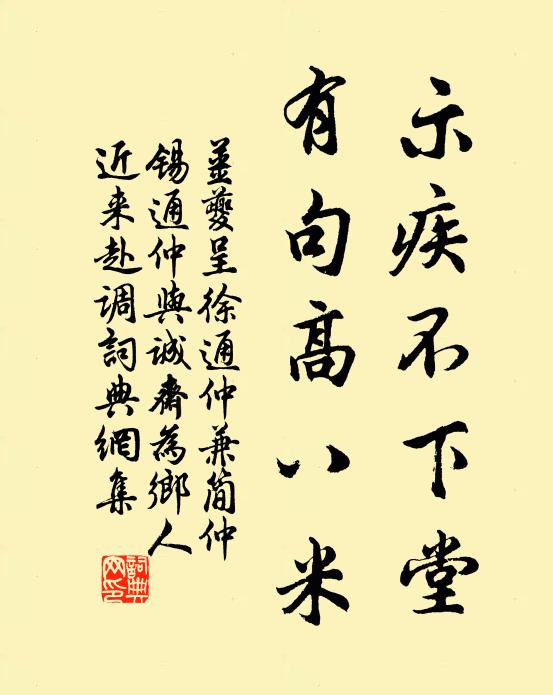 示疾不下堂
有句高八米
姜夔呈徐通仲兼简仲
锡通仲與诚齋為鄉人
近来赴调詞典網集
詞典网印